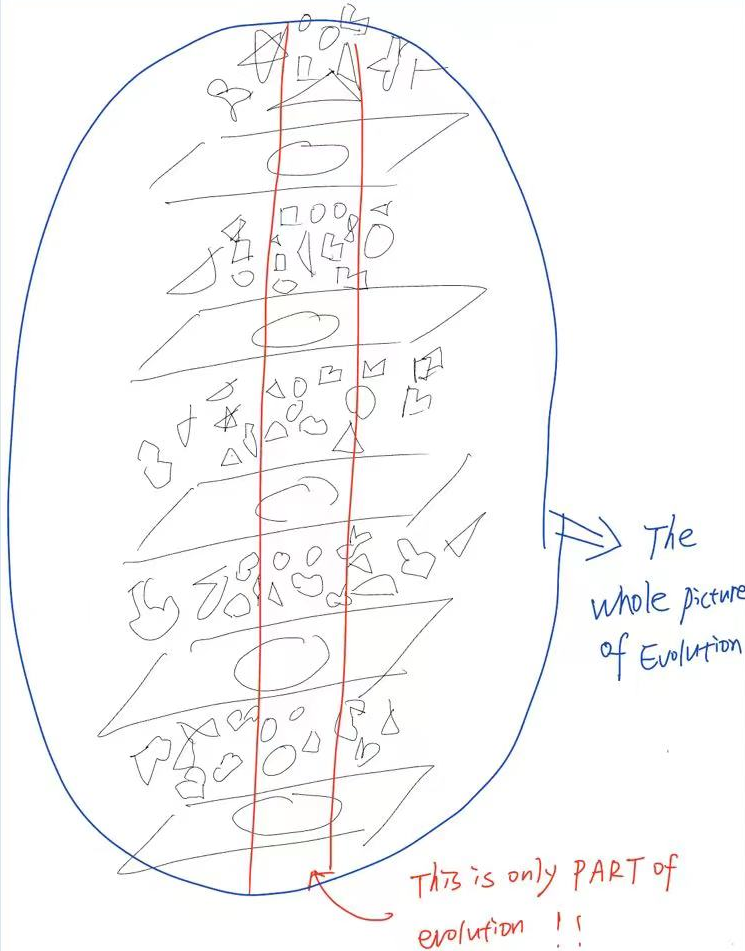 The
whole picture
of Evolution
This is only PART of
evolution !!